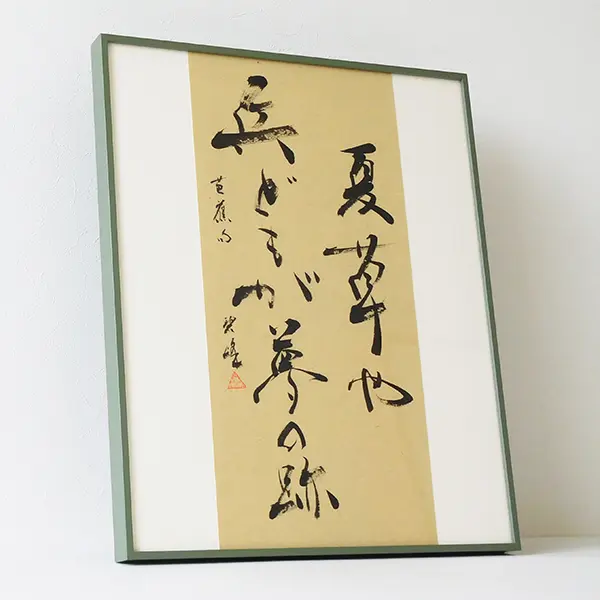 夏草や
兵どもが夢の跡
芭蕉句